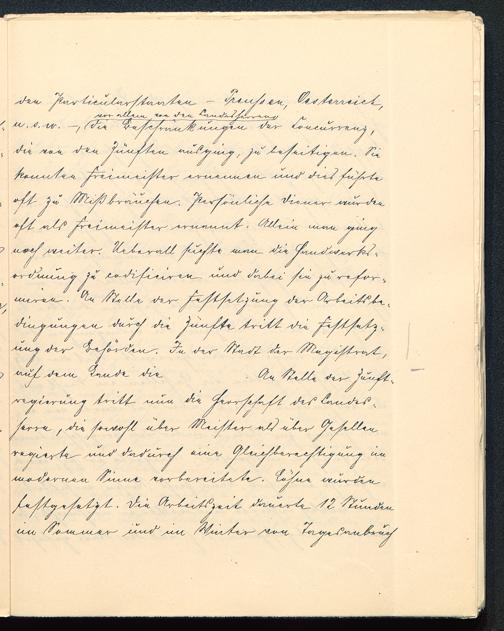 den Particularstaaten – Preussen, Oesterreich,
vor allem von den Landesherren
u. s. w. –, die Beschränkungen der Concurrenz,
die von den Zünften ausging, zu beseitigen. Sie
konnten Freimeister ernennen und dies führte
oft zu Mißbräuchen. Persönliche Diener wurden
oft als Freimeister ernannt. Allein man ging
noch weiter. Ueberall suchte man die Handwerks-
ordnung zu codificiren und dabei sie zu refor-
miren. An Stelle der Festsetzung der Arbeitsbe-
dingungen durch die Zünfte tritt die Festsetz-
ung der Behörden. In der Stadt der Magistrat,
auf dem Lande die . An Stelle der Zunft-
regierung tritt nun die Herrschaft des Landes-
herrn, die sowohl über Meister als über Gesellen
regierte und dadurch eine Gleichberechtigung im
modernen Sinne vorbereitete. Löhne wurden
festgesetzt. Die Arbeitszeit dauerte 12 Stunden
im Sommer und im Winter von Tagesanbruch